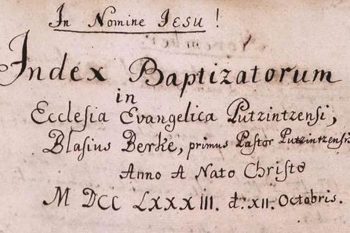 In Nomine IESU!
Index Baptizatorum
in
Ecclesia Evangelica Putzintzensi,
Blasius Berke, primus Pastor Putzintzensis
Anno A Nato Christo
M DCC LXXXIII. d. XII. Octobris.